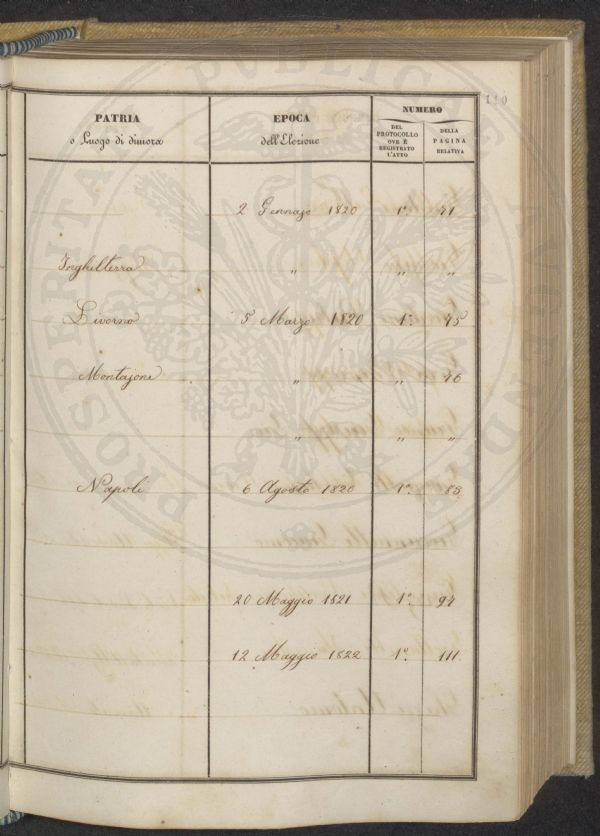 PROSPERITATI PUBLICAE AUGENDAE
110
PATRIA
o Luogo di dimora
EPOCA
dell'Elezione
NUMERO
DEL
PROTOCOLLO
OVE È
REGISTRATO
L'ATTO
DELLA
PAGINA
RELATIVA
2 Gennajo 1820 1º. 71
Inghilterra " " "
Livorno 5 Marzo 1820 1º. 75
Montajone " " 76
" " "
Napoli 6 Agosto 1820 1º. 85
20 Maggio 1821 1º. 97
12 Maggio 1822 1º. 111